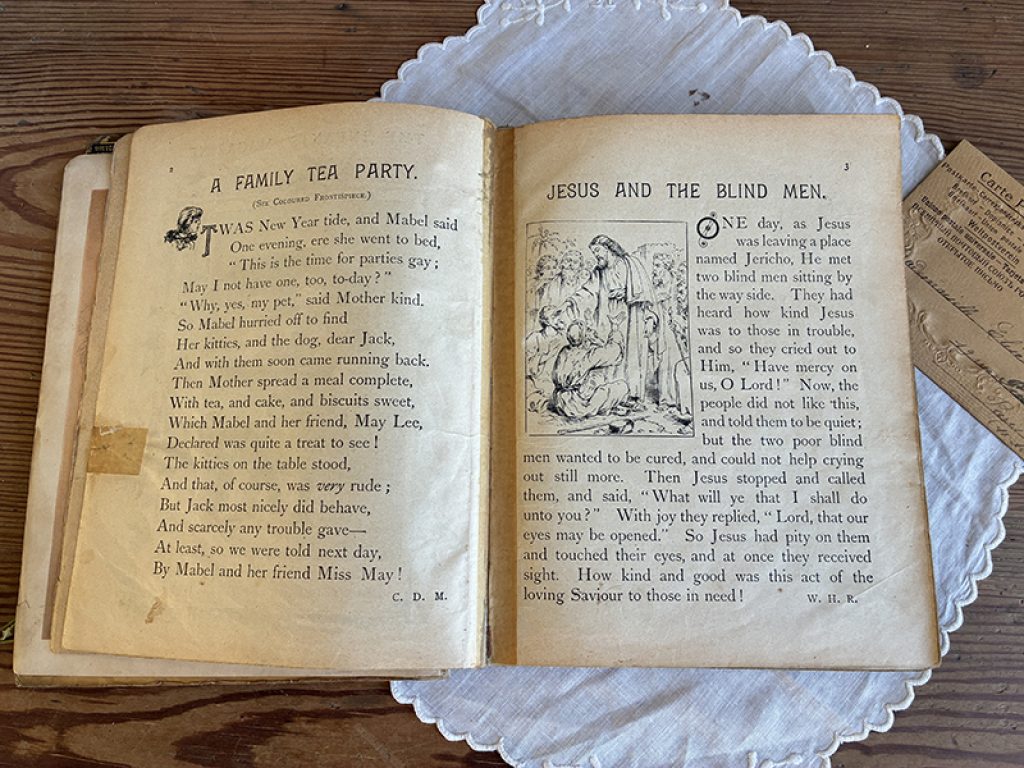 2
A FAMILY TEA PARTY.
(SEE COLOURED FRONTISPIECE.)
TWAS NEW Year tide, and Mabel said
One evening, ere she went to bed,
"This is the time for parties gay;
May I not have one, too, to-day?"
"Why, yes, my pet," said Mother kind.
So Mabel hurried off to find
Her kitties, and the dog, dear Jack,
And with them soon came running back.
Then Mother spread a meal complete,
With tea, and cake, and biscuits sweet,
Which Mabel and her friend, May Lee,
Declared was quite a treat to see!
The kitties on the table stood,
And that, of course, was very rude;
But Jack most nicely did behave,
And scarcely any trouble gave—
At least, so we were told next day,
By Mabel and her friend Miss May!
C. D. M.
3
JESUS AND THE BLIND MEN.
ONE day, as Jesus
was leaving a place
named Jericho, He met
two blind men sitting by
the way side. They had
heard how kind Jesus
was to those in trouble,
and so they cried out to
Him, "Have mercy on
us, O Lord!" Now, the
people did not like this,
and told them to be quiet;
but the two poor blind
men wanted to be cured, and could not help crying
out still more. Then Jesus stopped and called
them, and said, "What will ye that I shall do
unto you?" With joy they replied, "Lord, that our
eyes may be opened." So Jesus had pity on them
and touched their eyes, and at once they received
sight. How kind and good was this act of the
loving Saviour to those in need!
W. H. R.
Carte
Weltpostverein
ОТКРЫТОЕ ПИСЬМО